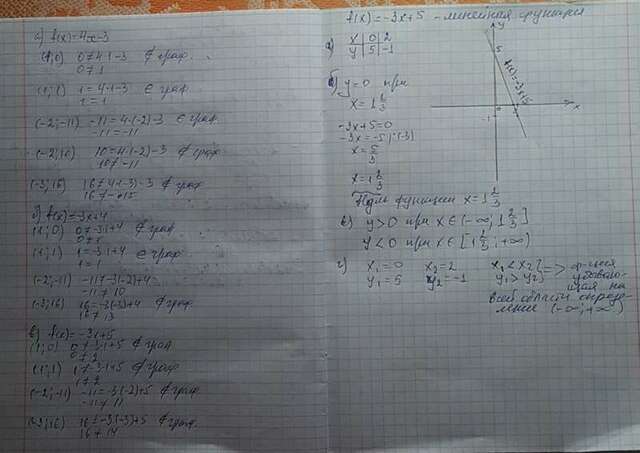 а) f(x)=4x-3
(1;0) 0≠4·1-3 ∉ граф.
0≠1
(1;1) 1=4·1-3 ∈ граф.
1=1
(-2;-11) -11=4·(-2)-3 ∈ граф.
-11=-11
(-2;10) 10≠4·(-2)-3 ∉ граф.
10≠-11
(-3;16) 16≠4·(-3)-3 ∉ граф.
16≠-15
б) f(x)=-3x+4
(1;0) 0≠-3·1+4 ∉ граф.
0≠1
(1;1) 1=-3·1+4 ∈ граф.
1=1
(-2;-11) -11≠-3(-2)+4
-11≠10
(-3;16) 16=-3(-3)+4 ∉ граф.
16≠13
в) f(x)=-3x+5
(1;0) 0≠-3·1+5 ∉ граф
0≠2
(1;1) 1≠-3·1+5 ∉ граф.
1≠2
(-2;-11) -11=-3·(-2)+5 ∉ граф.
-11≠11
(-3;16) 16≠-3(-3)+5 ∉ граф.
16≠14
f(x)=-3x+5 - линейная функция
а) x 0 2
y 5 -1
б) y=0 при
x=1 2/3
-3x+5=0
-3x=-5 |:(-3)
x=5/3
x=1 2/3
Нули функции x=1 2/3
в) y>0 при x∈(-∞; 1 2/3]
y<0 при x∈[1 2/3; +∞)
г) x₁=0 x₂=2 x₁<x₂ => ф-ция
y₁=5 y₂=-1 y₁>y₂ убываю-
щая на
всей области опреде-
ление (-∞;+∞)
y
5
f(x)=-3x+5
0
x
-1